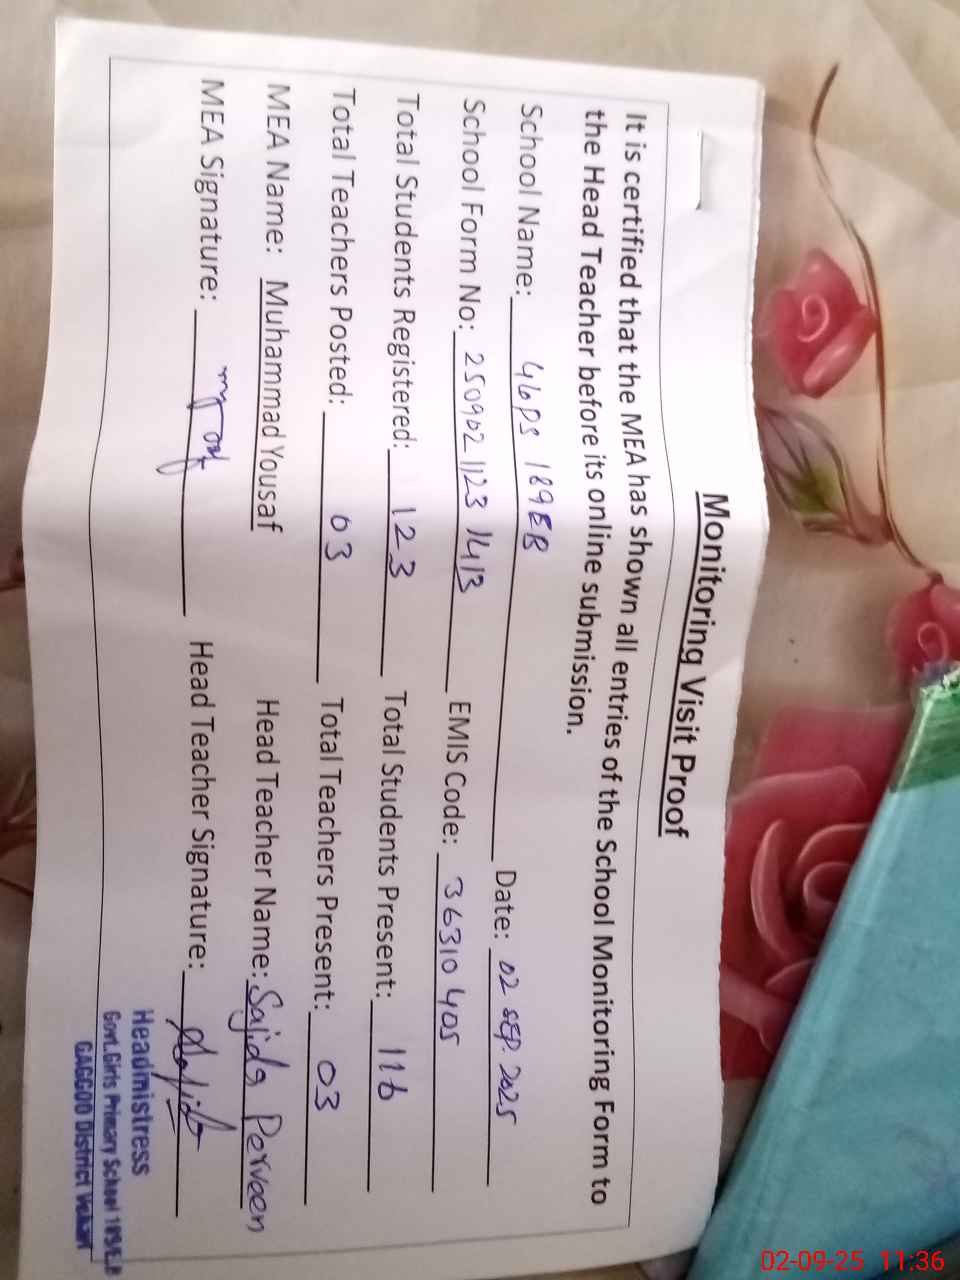 Monitoring Visit Proof
It is certified that the MEA has shown all entries of the School Monitoring Form to
the Head Teacher before its online submission.
School Name: GGPS 189EB Date: 02 SEP. 2025
School Form No: 250902 1123 1413 EMIS Code: 36310405
Total Students Registered: 123 Total Students Present: 116
Total Teachers Posted: 03 Total Teachers Present: 03
MEA Name: Muhammad Yousaf Head Teacher Name: Sajida Perveen
MEA Signature: Head Teacher Signature: Sajida
Headmistress
Govt.Girls Primary School 189/E.B
GAGGOO District Vehari
02-09-25 11:36